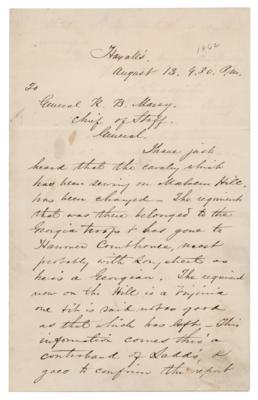 Haxall's
1862
August 13. 9.30 P.m.
To
General R. B. Marcy.
Chief of Staff.
General.
I have just
heard that the cavalry which
has been serving on Malvern Hill,
has been changed – The regiment
that was there belonged to the
Georgia troops & has gone to
Hanover Courthouse, most
probably with Longstreet as
he is a Georgian. The regiment
now on the Hill is a Virginia
one & it is said not so good
as that which has left. – This
information comes thro' a
contraband of Ladd's, &
goes to confirm the report